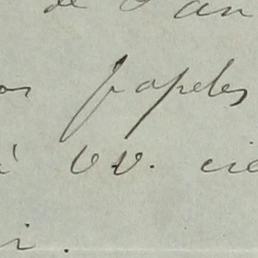 de San
os papeles
á VV. cie
i.